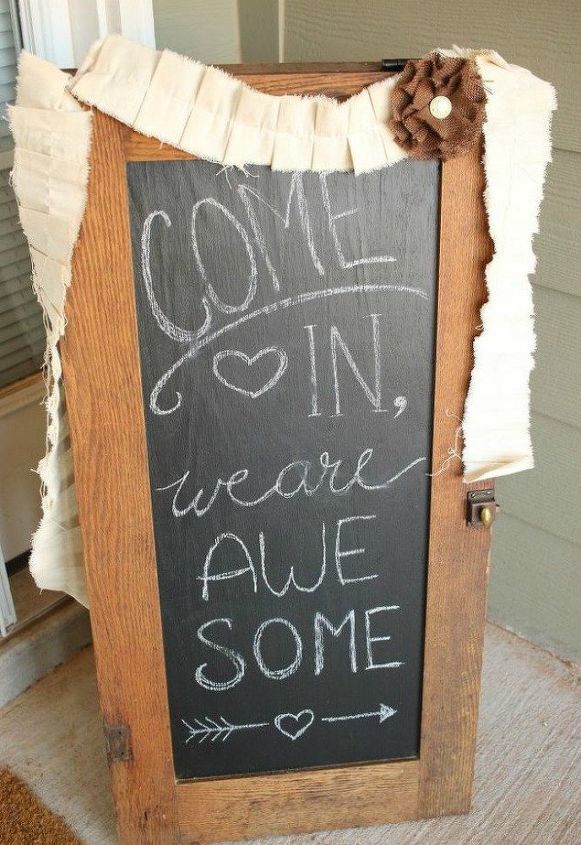 COME
IN,
we are
AWE
SOME